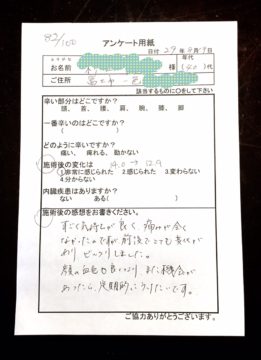 82/100
アンケート用紙
日付 29年8月9日
フリガナ
お名前 様
年代
(40)代
ご住所
該当するものに○をして下さい
辛い部分はどこですか?
頭、 首、 腰、 肩、 腕、 膝、 脚
一番辛いのはどこですか?
( )
どのように辛いですか?
痛い、 痺れる、 動かない
施術後の変化は 14.0 → 12.9
1.非常に感じられた 2.感じられた 3.変わらない
4.分からない
内臓疾患はありますか?
ない ある( )
施術後の感想をお書きください。
すごく気持ちが良く、痛みが全く
なかったのですが前後でとても変化が
あり、ビックリしました。
顔の血色も良くなり、また機会が
あったら、定期的にうけたいです。
ご協力ありがとうございます。